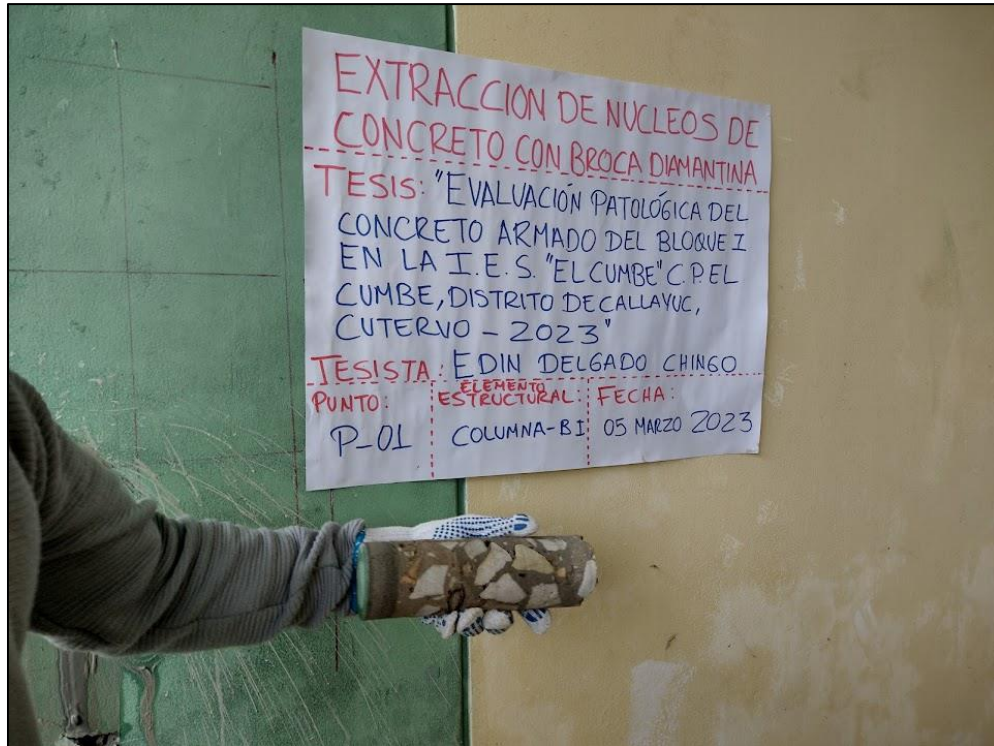 EXTRACCION DE NUCLEOS DE
CONCRETO CON BROCA DIAMANTINA
TESIS: "EVALUACIÓN PATOLÓGICA DEL
CONCRETO ARMADO DEL BLOQUE I
EN LA I.E.S. "EL CUMBE" C.P. EL
CUMBE, DISTRITO DE CALLAYUC,
CUTERVO - 2023"
TESISTA: EDIN DELGADO CHINGO
PUNTO:
P-01
ELEMENTO
ESTRUCTURAL:
COLUMNA-BI
FECHA:
05 MARZO 2023